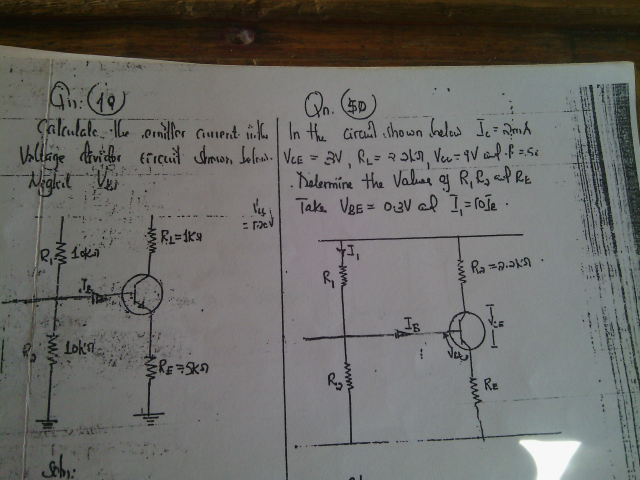 Qn: (49)
Calculate the emitter current in the
Voltage divider circuit shown below.
Neglect VBE
Vcc
R1 10KΩ
RL=1KΩ
IB
10KΩ
RE=5KΩ
Soln:
Qn. (50)
In the circuit shown below Ic=2mA
VCE = 3V, RL= 2.2KΩ, Vcc=9V and
. Determine the Values of R1 R2 and RE
Take VBE= 0.3V and I1=10IB.
I1
R1
R2=2.2KΩ
IB
VCE
R2
RE